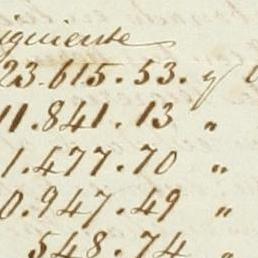 iguiente
23.615.53. y
11.841.13 "
1.477.70 "
0.947.49 "
548.74 "